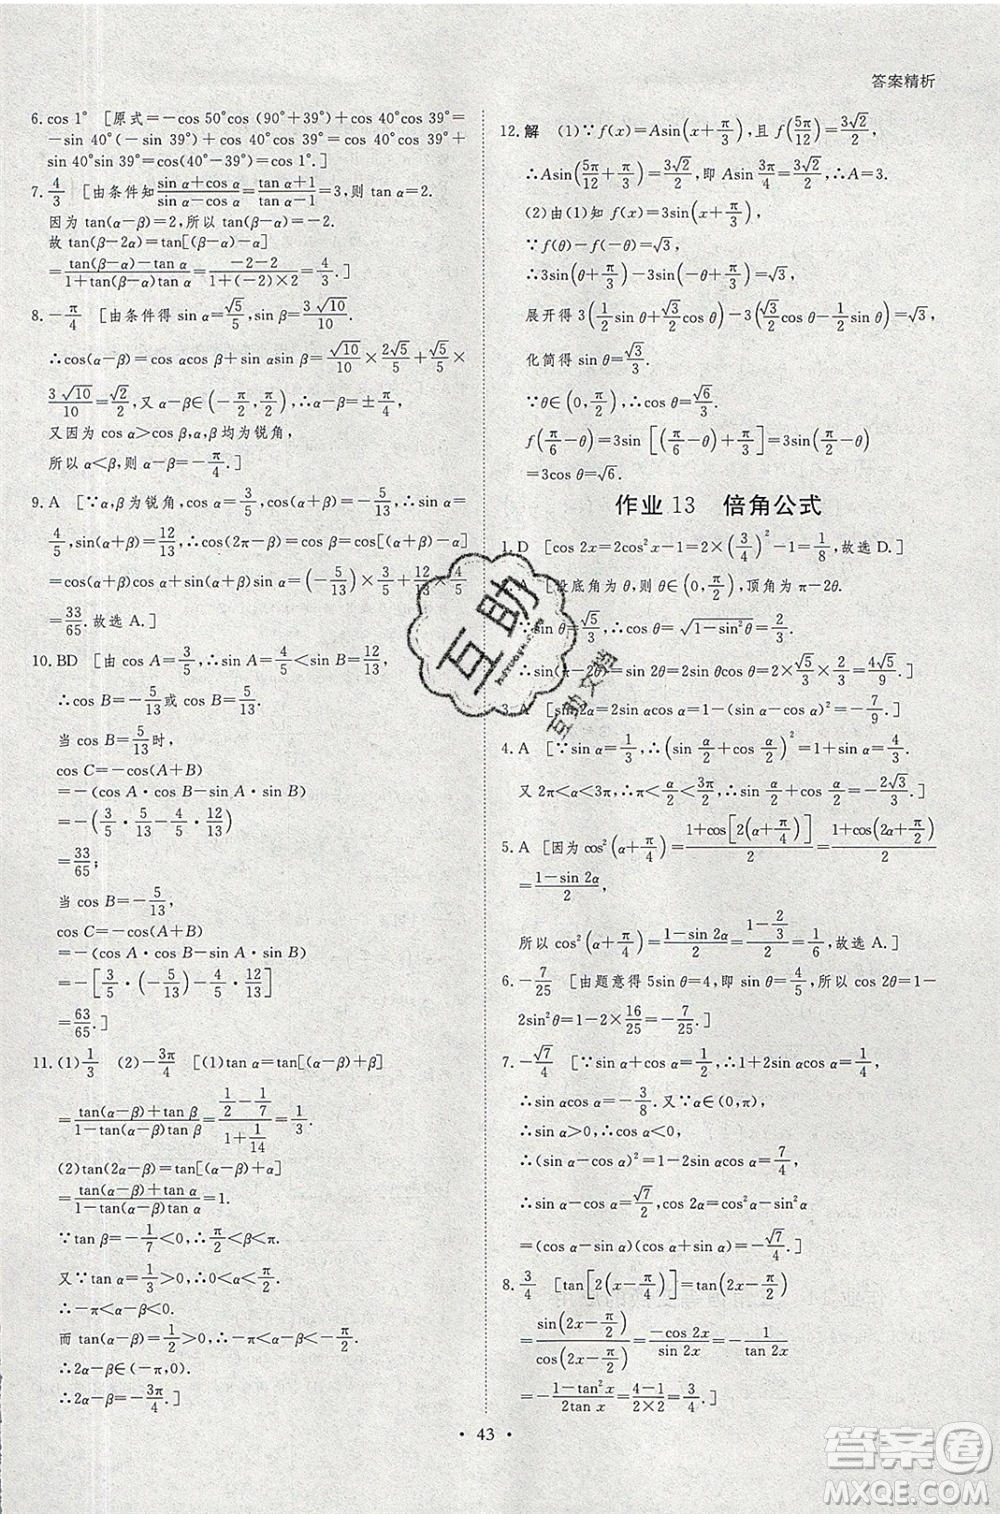 答案精析
6. cos 1° [原式=-cos 50°cos(90°+39°)+cos 40°cos 39°=
-sin 40°(-sin 39°)+cos 40°cos 39°=cos 40°cos 39°+
sin 40°sin 39°=cos(40°-39°)=cos 1°.]
7. 4/3 [由条件知(sin α+cos α)/(sin α-cos α)=(tan α+1)/(tan α-1)=3,则 tan α=2.
因为 tan(α-β)=2,所以 tan(β-α)=-2.
故 tan(β-2α)=tan[(β-α)-α]
=(tan(β-α)-tan α)/(1+tan(β-α)tan α)=(-2-2)/(1+(-2)×2)=4/3.]
8. -π/4 [由条件得 sin α=√5/5,sin β=3√10/10.
∴cos(α-β)=cos αcos β+sin αsin β=√10/10×2√5/5+√5/5×
3√10/10=√2/2,又 α-β∈(-π/2,π/2),∴α-β=±π/4,
又因为 cos α>cos β,α,β均为锐角,
所以 α<β,∴α-β=-π/4.]
9. A [∵α,β为锐角,cos α=3/5,cos(α+β)=-5/13,∴sin α=
4/5,sin(α+β)=12/13,∴cos(2π-β)=cos β=cos[(α+β)-α]
=cos(α+β)cos α+sin(α+β)sin α=-5/13×3/5+12/13×4/5
=33/65.故选 A.]
10. BD [由 cos A=3/5,sin B=12/13,得 sin A=4/5,
∴cos B=-5/13或 cos B=5/13.
当 cos B=5/13时,
cos C=-cos(A+B)
=-(cos A·cos B-sin A·sin B)
=-(3/5·5/13-4/5·12/13)
=33/65;
当 cos B=-5/13,
cos C=-cos(A+B)
=-(cos A·cos B-sin A·sin B)
=-[3/5·(-5/13)-4/5·12/13]
=63/65.]
11. (1)1/3 (2)-3π/4 [(1)tan α=tan[(α-β)+β]
=(tan(α-β)+tan β)/(1-tan(α-β)tan β)=(1/2-1/7)/(1+1/14)=1/3.
(2)tan(2α-β)=tan[(α-β)+α]
=(tan(α-β)+tan α)/(1-tan(α-β)tan α)=1.
∵tan β=-1/7<0,∴π/2<β<π.
又∵tan α=1/3>0,∴0<α<π/2.
∴-π<α-β<0.
而 tan(α-β)=1/2>0,∴-π<α-β<-π/2.
∴2α-β∈(-π,0).
∴2α-β=-3π/4.]
12. 解 (1)∵f(x)=Asin(x+π/3),且 f(5π/12)=3√2/2,
∴Asin(5π/12+π/3)=3√2/2,即 Asin3π/4=3√2/2,∴A=3.
(2)由(1)知 f(x)=3sin(x+π/3),
∵f(θ)-f(-θ)=√3,
∴3sin(θ+π/3)-3sin(-θ+π/3)=√3,
展开得 3(1/2sin θ+√3/2cos θ)-3(√3/2cos θ-1/2sin θ)=√3,
化简得 sin θ=√3/3.
∵θ∈(0,π/2),∴cos θ=√6/3.
f(π/6-θ)=3sin[(π/6-θ)+π/3]=3sin(π/2-θ)
=3cos θ=√6.
作业 13 倍角公式
1. D [cos 2x=2cos²x-1=2×(3/4)²-1=1/8,故选 D.]
[设底角为 θ,则 θ∈(0,π/2),顶角为 π-2θ.
∵sin θ=√5/3,∴cos θ=√(1-sin²θ)=2/3.
∴sin(π-2θ)=sin 2θ=2sin θcos θ=2×√5/3×2/3=4√5/9.]
3. A [sin 2α=2sin αcos α=1-(sin α-cos α)²=-7/9.]
4. A [∵sin α=1/3,∴(sin α/2+cos α/2)²=1+sin α=4/3.
又 2π<α<3π,∴π<α/2<3π/2,∴sin α/2+cos α/2=-2√3/3.]
5. A [因为 cos²(α+π/4)=(1+cos[2(α+π/4)])/2=(1+cos(2α+π/2))/2
=(1-sin 2α)/2,
所以 cos²(α+π/4)=(1-sin 2α)/2=(1-2/3)/2=1/6,故选 A.]
6. -7/25 [由题意得 5sin θ=4,即 sin θ=4/5,所以 cos 2θ=1-
2sin²θ=1-2×16/25=-7/25.]
7. -√7/4 [∵sin α+cos α=1/2,∴1+2sin αcos α=1/4,
∴sin αcos α=-3/8.又∵α∈(0,π),
∴sin α>0,∴cos α<0.
∵(sin α-cos α)²=1-2sin αcos α=7/4,
∴sin α-cos α=√7/2,∴cos 2α=cos²α-sin²α
=(cos α-sin α)(cos α+sin α)=-√7/4.]
8. 3/4 [tan[2(x-π/4)]=tan(2x-π/2)
=sin(2x-π/2)/cos(2x-π/2)=-cos 2x/sin 2x=-1/tan 2x
=-(1-tan²x)/(2tan x)=(4-1)/(2×2)=3/4.]
• 43 •
互助
互助文档
答案圈
MXQE.COM